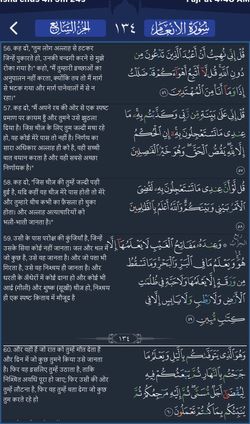 الجزء السابع
١٣٤
سورة الأنعام
56. कह दो, "तुम लोग अल्लाह से हटकर
जिन्हें पुकारते हो, उनकी बन्दगी करने से मुझे
रोका गया है।" कहो, "मैं तुम्हारी इच्छाओं का
अनुपालन नहीं करता, क्योंकि तब तो मैं मार्ग
से भटक गया और मार्ग पानेवालों में से न
रहा।"
قُلْ إِنِّي نُهِيتُ أَنْ أَعْبُدَ الَّذِينَ تَدْعُونَ مِن
دُونِ اللَّهِ قُل لَّا أَتَّبِعُ أَهْوَاءَكُمْ قَدْ ضَلَلْتُ
إِذًا وَمَا أَنَا مِنَ الْمُهْتَدِينَ ﴿٥٦﴾
57. कह दो, "मैं अपने रब की ओर से एक स्पष्ट
प्रमाण पर क़ायम हूँ और तुमने उसे झुठला
दिया है। जिस चीज़ के लिए तुम जल्दी मचा रहे
हो, वह कोई मेरे पास तो नहीं है। निर्णय का
सारा अधिकार अल्लाह ही को है, वही सच्ची
बात बयान करता है और वही सबसे अच्छा
निर्णायक है।"
قُلْ إِنِّي عَلَىٰ بَيِّنَةٍ مِّن رَّبِّي وَكَذَّبْتُم بِهِ مَا
عِندِي مَا تَسْتَعْجِلُونَ بِهِ إِنِ الْحُكْمُ
إِلَّا لِلَّهِ يَقُصُّ الْحَقَّ وَهُوَ خَيْرُ الْفَاصِلِينَ
﴿٥٧﴾
58. कह दो, "जिस चीज़ की तुम्हें जल्दी पड़ी
हुई है, यदि कहीं वह चीज़ मेरे पास होती तो मेरे
और तुम्हारे बीच कभी का फ़ैसला हो चुका
होता। और अल्लाह अत्याचारियों को
भली-भाँती जानता है।"
قُل لَّوْ أَنَّ عِندِي مَا تَسْتَعْجِلُونَ بِهِ لَقُضِيَ
الْأَمْرُ بَيْنِي وَبَيْنَكُمْ وَاللَّهُ أَعْلَمُ بِالظَّالِمِينَ
﴿٥٨﴾
59. उसी के पास परोक्ष की कुंजियाँ है, जिन्हें
उसके सिवा कोई नहीं जानता। जल और थल में
जो कुछ है, उसे वह जानता है। और जो पत्ता भी
गिरता है, उसे वह निश्चय ही जानता है। और
धरती के अँधेरों में कोई दाना हो और कोई भी
आर्द्र (गीली) और शुष्क (सूखी) चीज़ हो, निश्चय
ही एक स्पष्ट किताब में मौजूद है
وَعِندَهُ مَفَاتِحُ الْغَيْبِ لَا يَعْلَمُهَا إِلَّا
هُوَ وَيَعْلَمُ مَا فِي الْبَرِّ وَالْبَحْرِ وَمَا تَسْقُطُ
مِن وَرَقَةٍ إِلَّا يَعْلَمُهَا وَلَا حَبَّةٍ فِي ظُلُمَاتِ
الْأَرْضِ وَلَا رَطْبٍ وَلَا يَابِسٍ إِلَّا فِي
كِتَابٍ مُّبِينٍ ﴿٥٩﴾
١٣٤
60. और वही है जो रात को तुम्हें मौत देता है
और दिन में जो कुछ तुमने किया उसे जानता
है। फिर वह इसलिए तुम्हें उठाता है, ताकि
निश्चित अवधि पूरा हो जाए; फिर उसी की ओर
तुम्हें लौटना है, फिर वह तुम्हें बता देगा जो कुछ
तुम करते रहे हो
وَهُوَ الَّذِي يَتَوَفَّاكُم بِاللَّيْلِ وَيَعْلَمُ مَا
جَرَحْتُم بِالنَّهَارِ ثُمَّ يَبْعَثُكُمْ فِيهِ
لِيُقْضَىٰ أَجَلٌ مُّسَمًّى ثُمَّ إِلَيْهِ مَرْجِعُكُمْ ثُمَّ
يُنَبِّئُكُم بِمَا كُنتُمْ تَعْمَلُونَ ﴿٦٠﴾